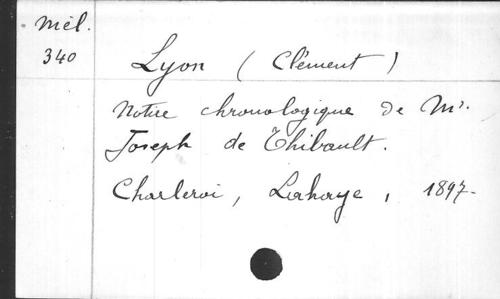 Mél.
340
Lyon (Clément)
Notice chronologique de Mr.
Joseph de Thibault.
Charleroi, Lahaye, 1897.